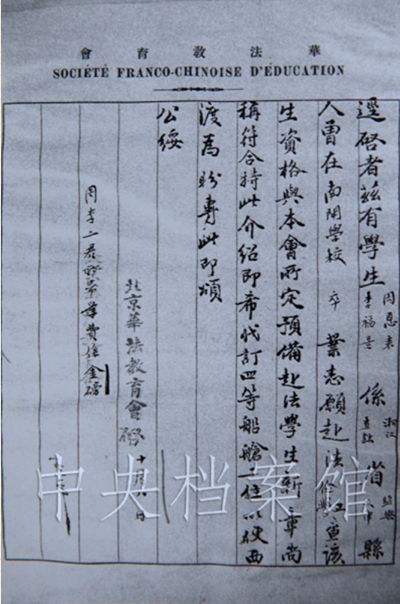 會育教法華
SOCIÉTÉ FRANCO-CHINOISE D'ÉDUCATION
逕啓者茲有學生 周恩来 李福景 係 浙江 直隸 省 紹興 縣
人曾在南開學校 卒 業志願赴法 查該
生資格與本會所定預備赴法學生新章尚
稱符合特此介紹即希代訂四等船艙 位以便西
渡為盼專此即頌
公綏
北京華法教育會啓
十月八日
周李二君 船費係金磅
中央档案馆